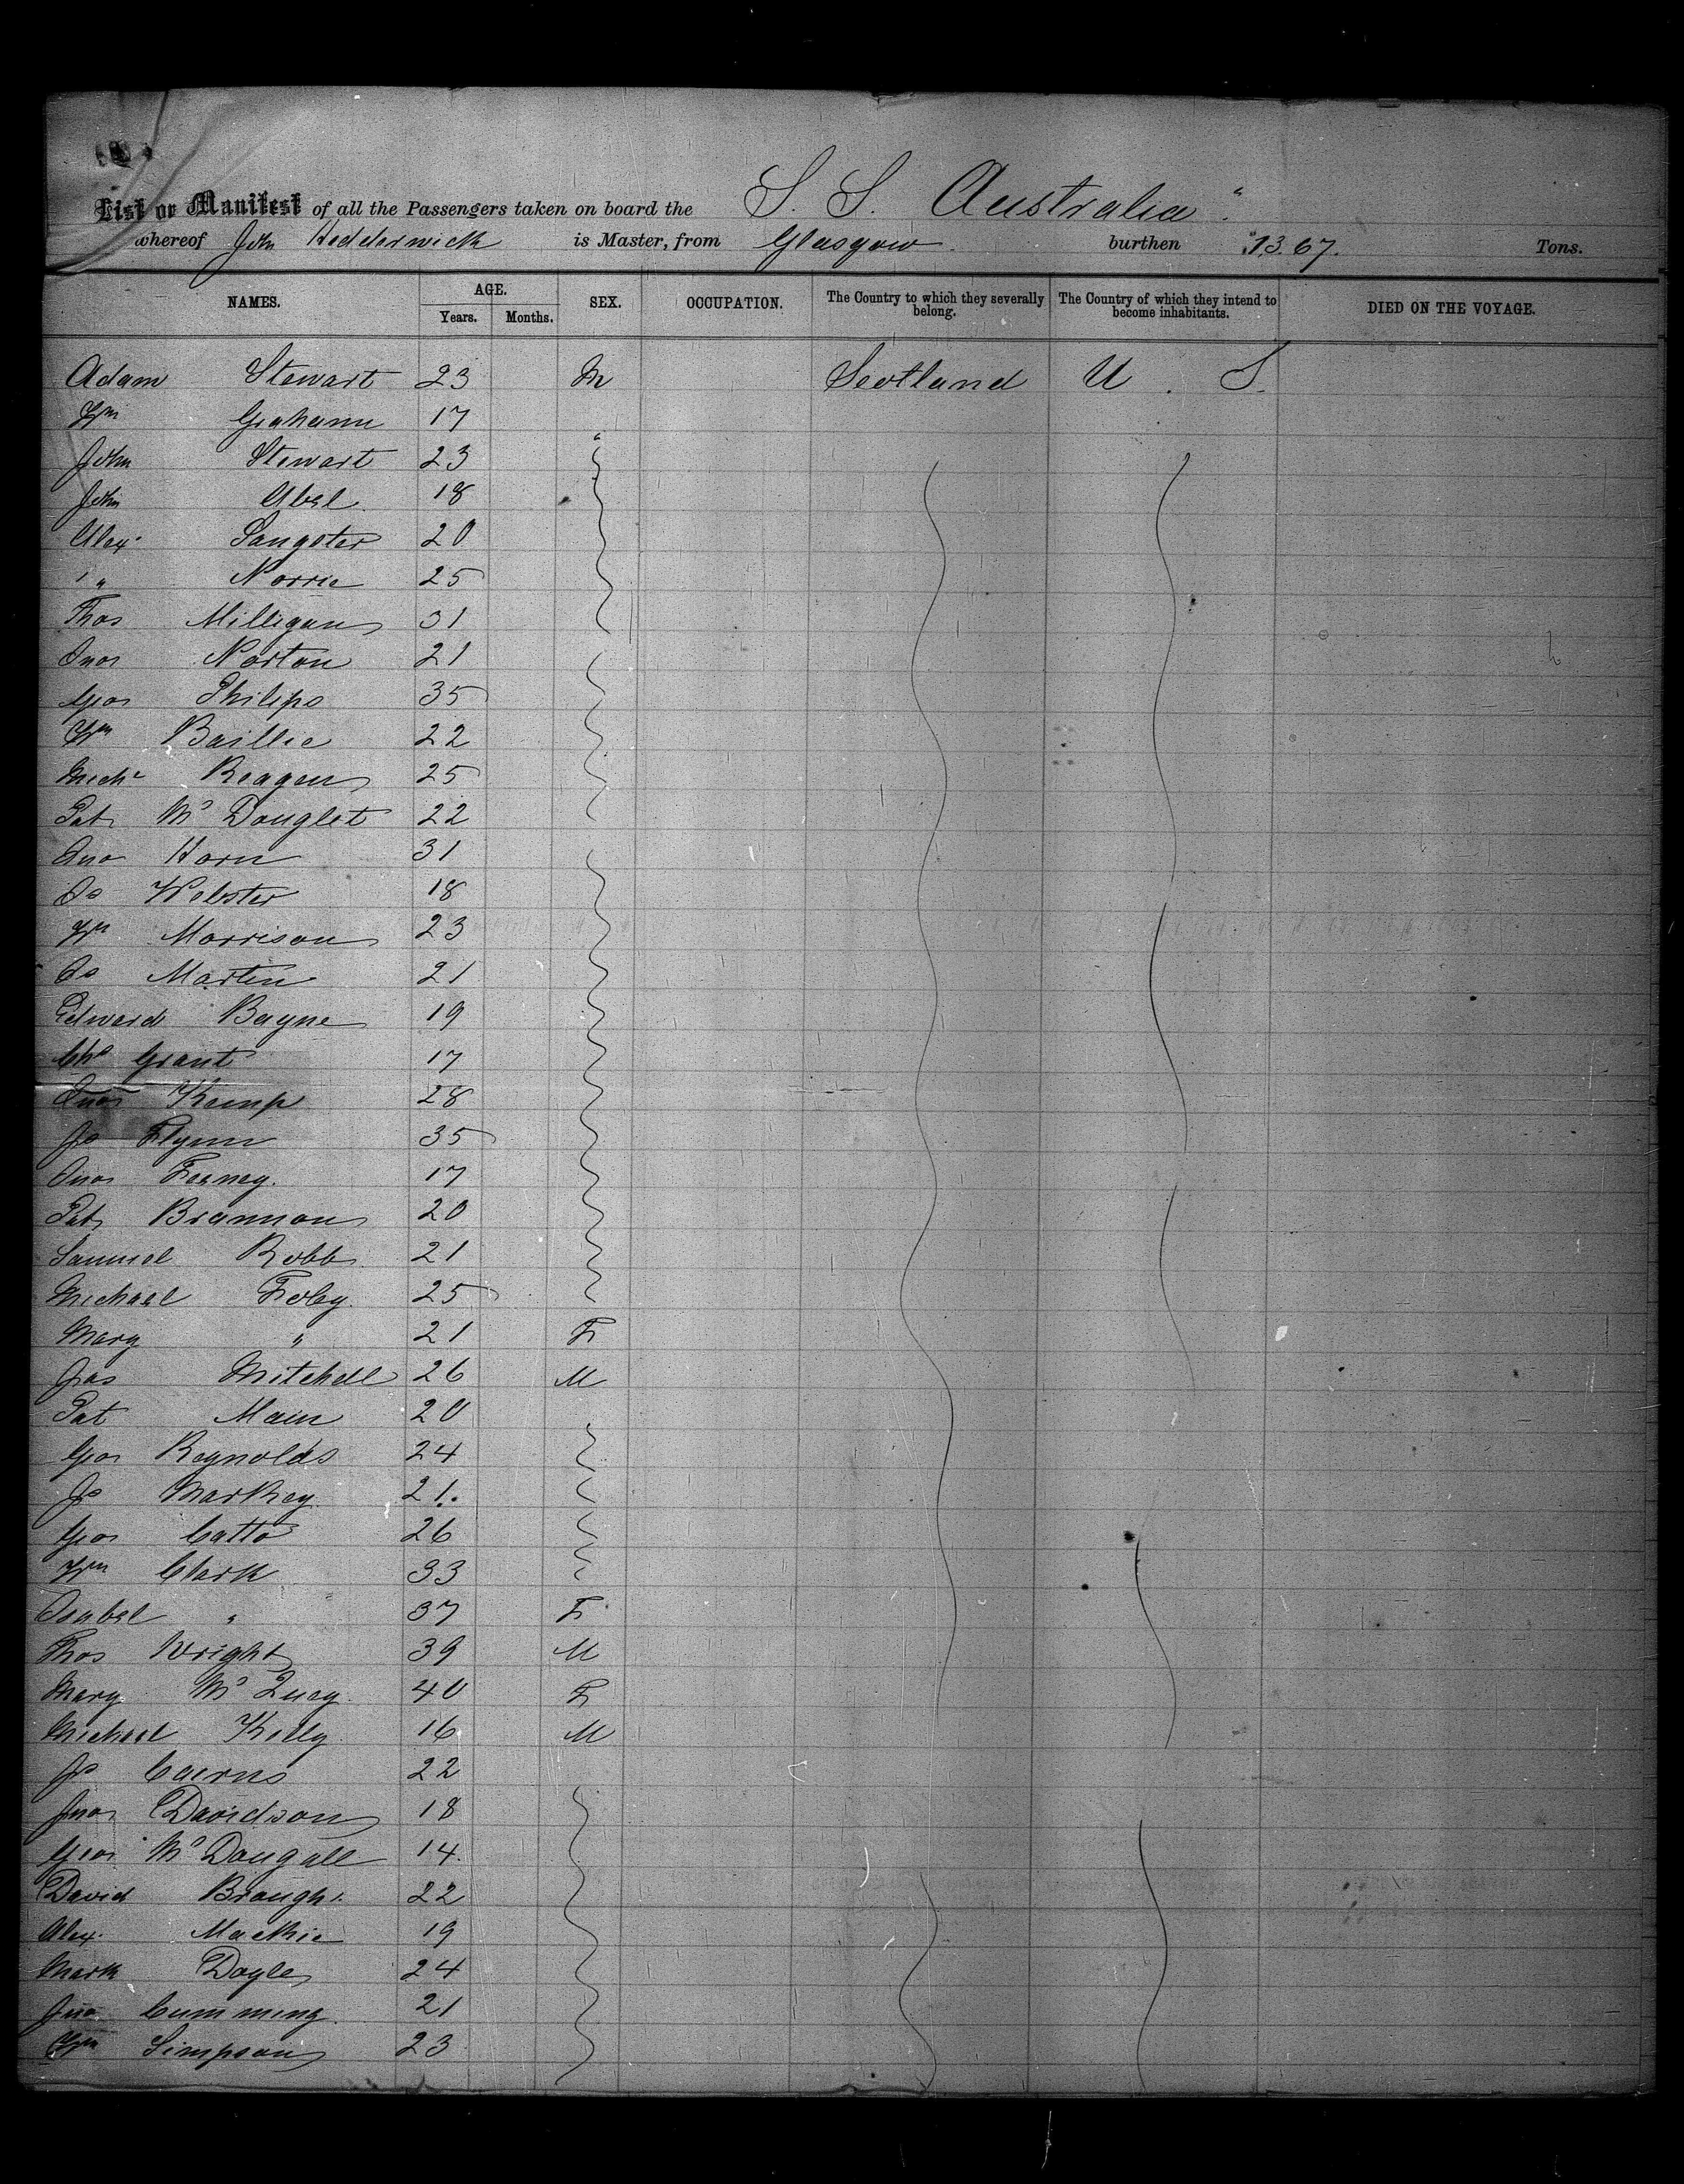 List or Manifest of all the Passengers taken on board the S. S. Australia"
whereof John Hedderwick is Master, from Glasgow. burthen 1367. Tons.
NAMES. AGE. SEX. OCCUPATION. The Country to which they severally belong. The Country of which they intend to become inhabitants. DIED ON THE VOYAGE.
Years. Months.
Adam Stewart 23 M Scotland U. S.
Wm Graham 17
John Stewart 23
John Abel 18
Alex. Sangster 20
" Norrie 25
Thos Milligan 31
Jno Norton 21
Geo Philips 35
Wm Baillie 22
Michl Reagen 25
Pat Mc 22
Jno Horn 31
Js Webster 18
Wm Morrison 23
Js Martin 21
Edward Bayne 19
Chs Grant 17
Jno Kemp 28
Js Flynn 35
Jno Feeney. 17
Pat Brannon 20
Samuel Robb 21
Michael Foley. 25
Mary " 21 F
Jas Mitchell 26 M
Pat Main 20
Geo Reynolds 24
Js Markey 21.
Geo Catto 26
Wm Clark 33
Isabel " 37 F
Thos Wright 39 M
Mary Mc 40 F
Michael Kelly 16 M
Js Cairns 22
Jno Davidson 18
Geo McDougall 14.
David Brough 22
Alex. Mackie 19
Mark Doyle 24
Jno Cumming. 21
Wm Simpson 23